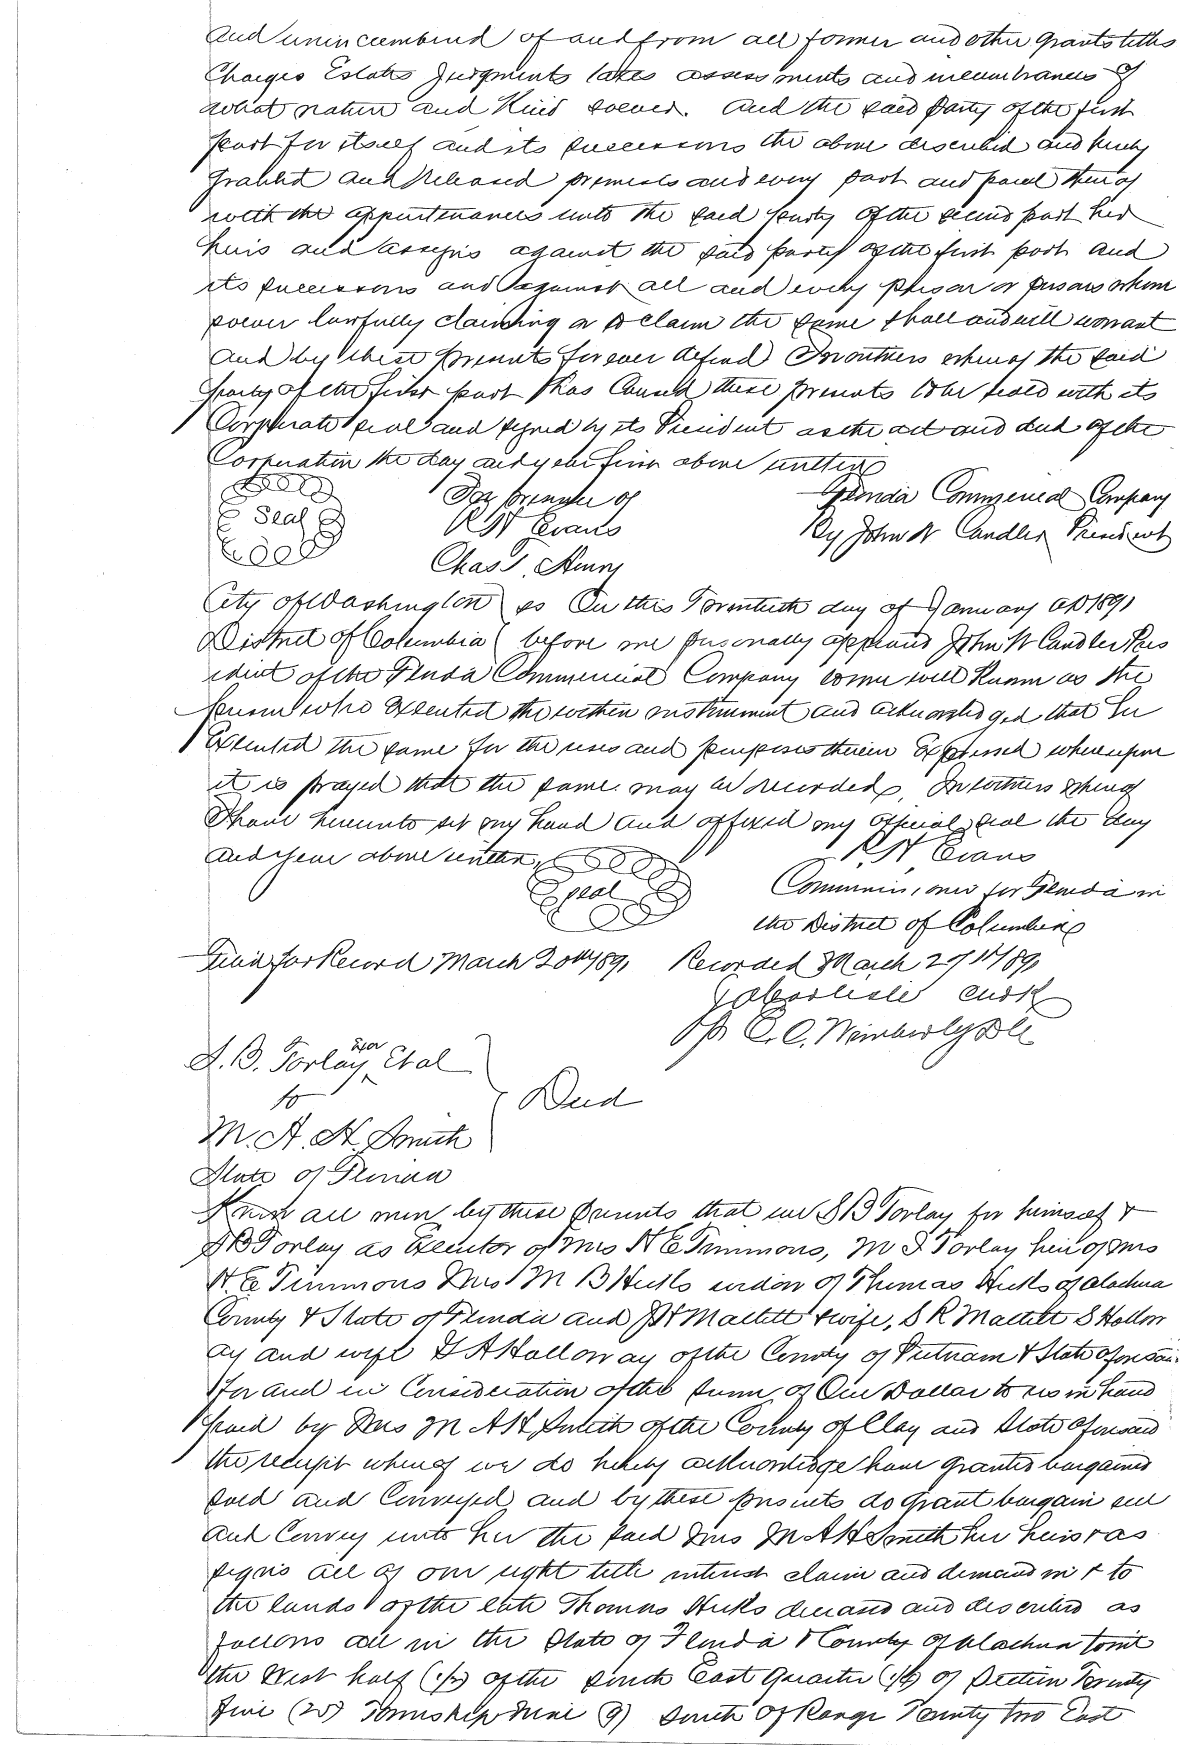 and unincumbered of and from all former and other grants titles
Charges Estates Judgments taxes assessments and incumbrances of
what nature and Kind soever. And the said Party of the first
part for itself and its successors the above described and hereby
granted and released premises and every part and parcel thereof
with the appurtenances unto the said party of the second part her
heirs and assigns against the said party of the first part and
its successors and against all and every person or persons whom
soever lawfully claiming or to claim the same shall and will warrant
and by these presents forever defend In witness whereof the said
party of the first part has Caused these presents to be seald with its
Corporate seal and signed by its President as the act and deed of the
Corporation the day and year first above written
Seal In presence of Florida Commercial Company
R H Evans By John W Candler President
Chas T. Henry
City of Washington ss On this Twentieth day of January AD 1891
District of Columbia before me personally appeared John W Candler Pres
ident of the Florida Commercial Company to me well Known as the
person who Executed the within instrument and acknowledged that he
Executed the same for the uses and purposes therein Expressed whereupon
it is prayed that the same may be recorded, In witness whereof
I have hereunto set my hand and affixed my official seal the day
and year above written, R. H Evans
Seal Commissioner for Florida in
the District of Columbia
Filed for Record March 20th 1891 Recorded March 27th 1891
J A Carlisle Clerk
pr C. C. Wimberly D C
S. B. Torlay Exor Et al
to Deed
M. A. H. Smith
State of Florida
Know all men by these presents that we S B Torlay for himself &
S B Torlay as Executor of Mrs H E Timmons, M I Torlay heir of Mrs
H. E Timmons Mrs M B Hicks widow of Thomas Hicks of Alachua
County & State of Florida and J H Maclett & wife, S R Maclett S Hollow
ay and wife G A Holloway of the County of Putnam & State aforesaid
for and in Consideration of the sum of One Dollar to us in hand
paid by Mrs M A H Smith of the County of Clay and State aforesaid
the receipt whereof we do hereby acknowledge have granted bargained
sold and Conveyed, and by these presents do grant bargain sell
and Convey unto her the said Mrs M A H Smith her heirs & as
signs all of our right title interest claim and demand in & to
the lands of the late Thomas Hicks deceased and described as
follows all in the State of Florida & County of Alachua towit
the West half (1/2) of the South East Quarter (1/4) of Section Twenty
five (25) Township Nine (9) South of Range Twenty two East